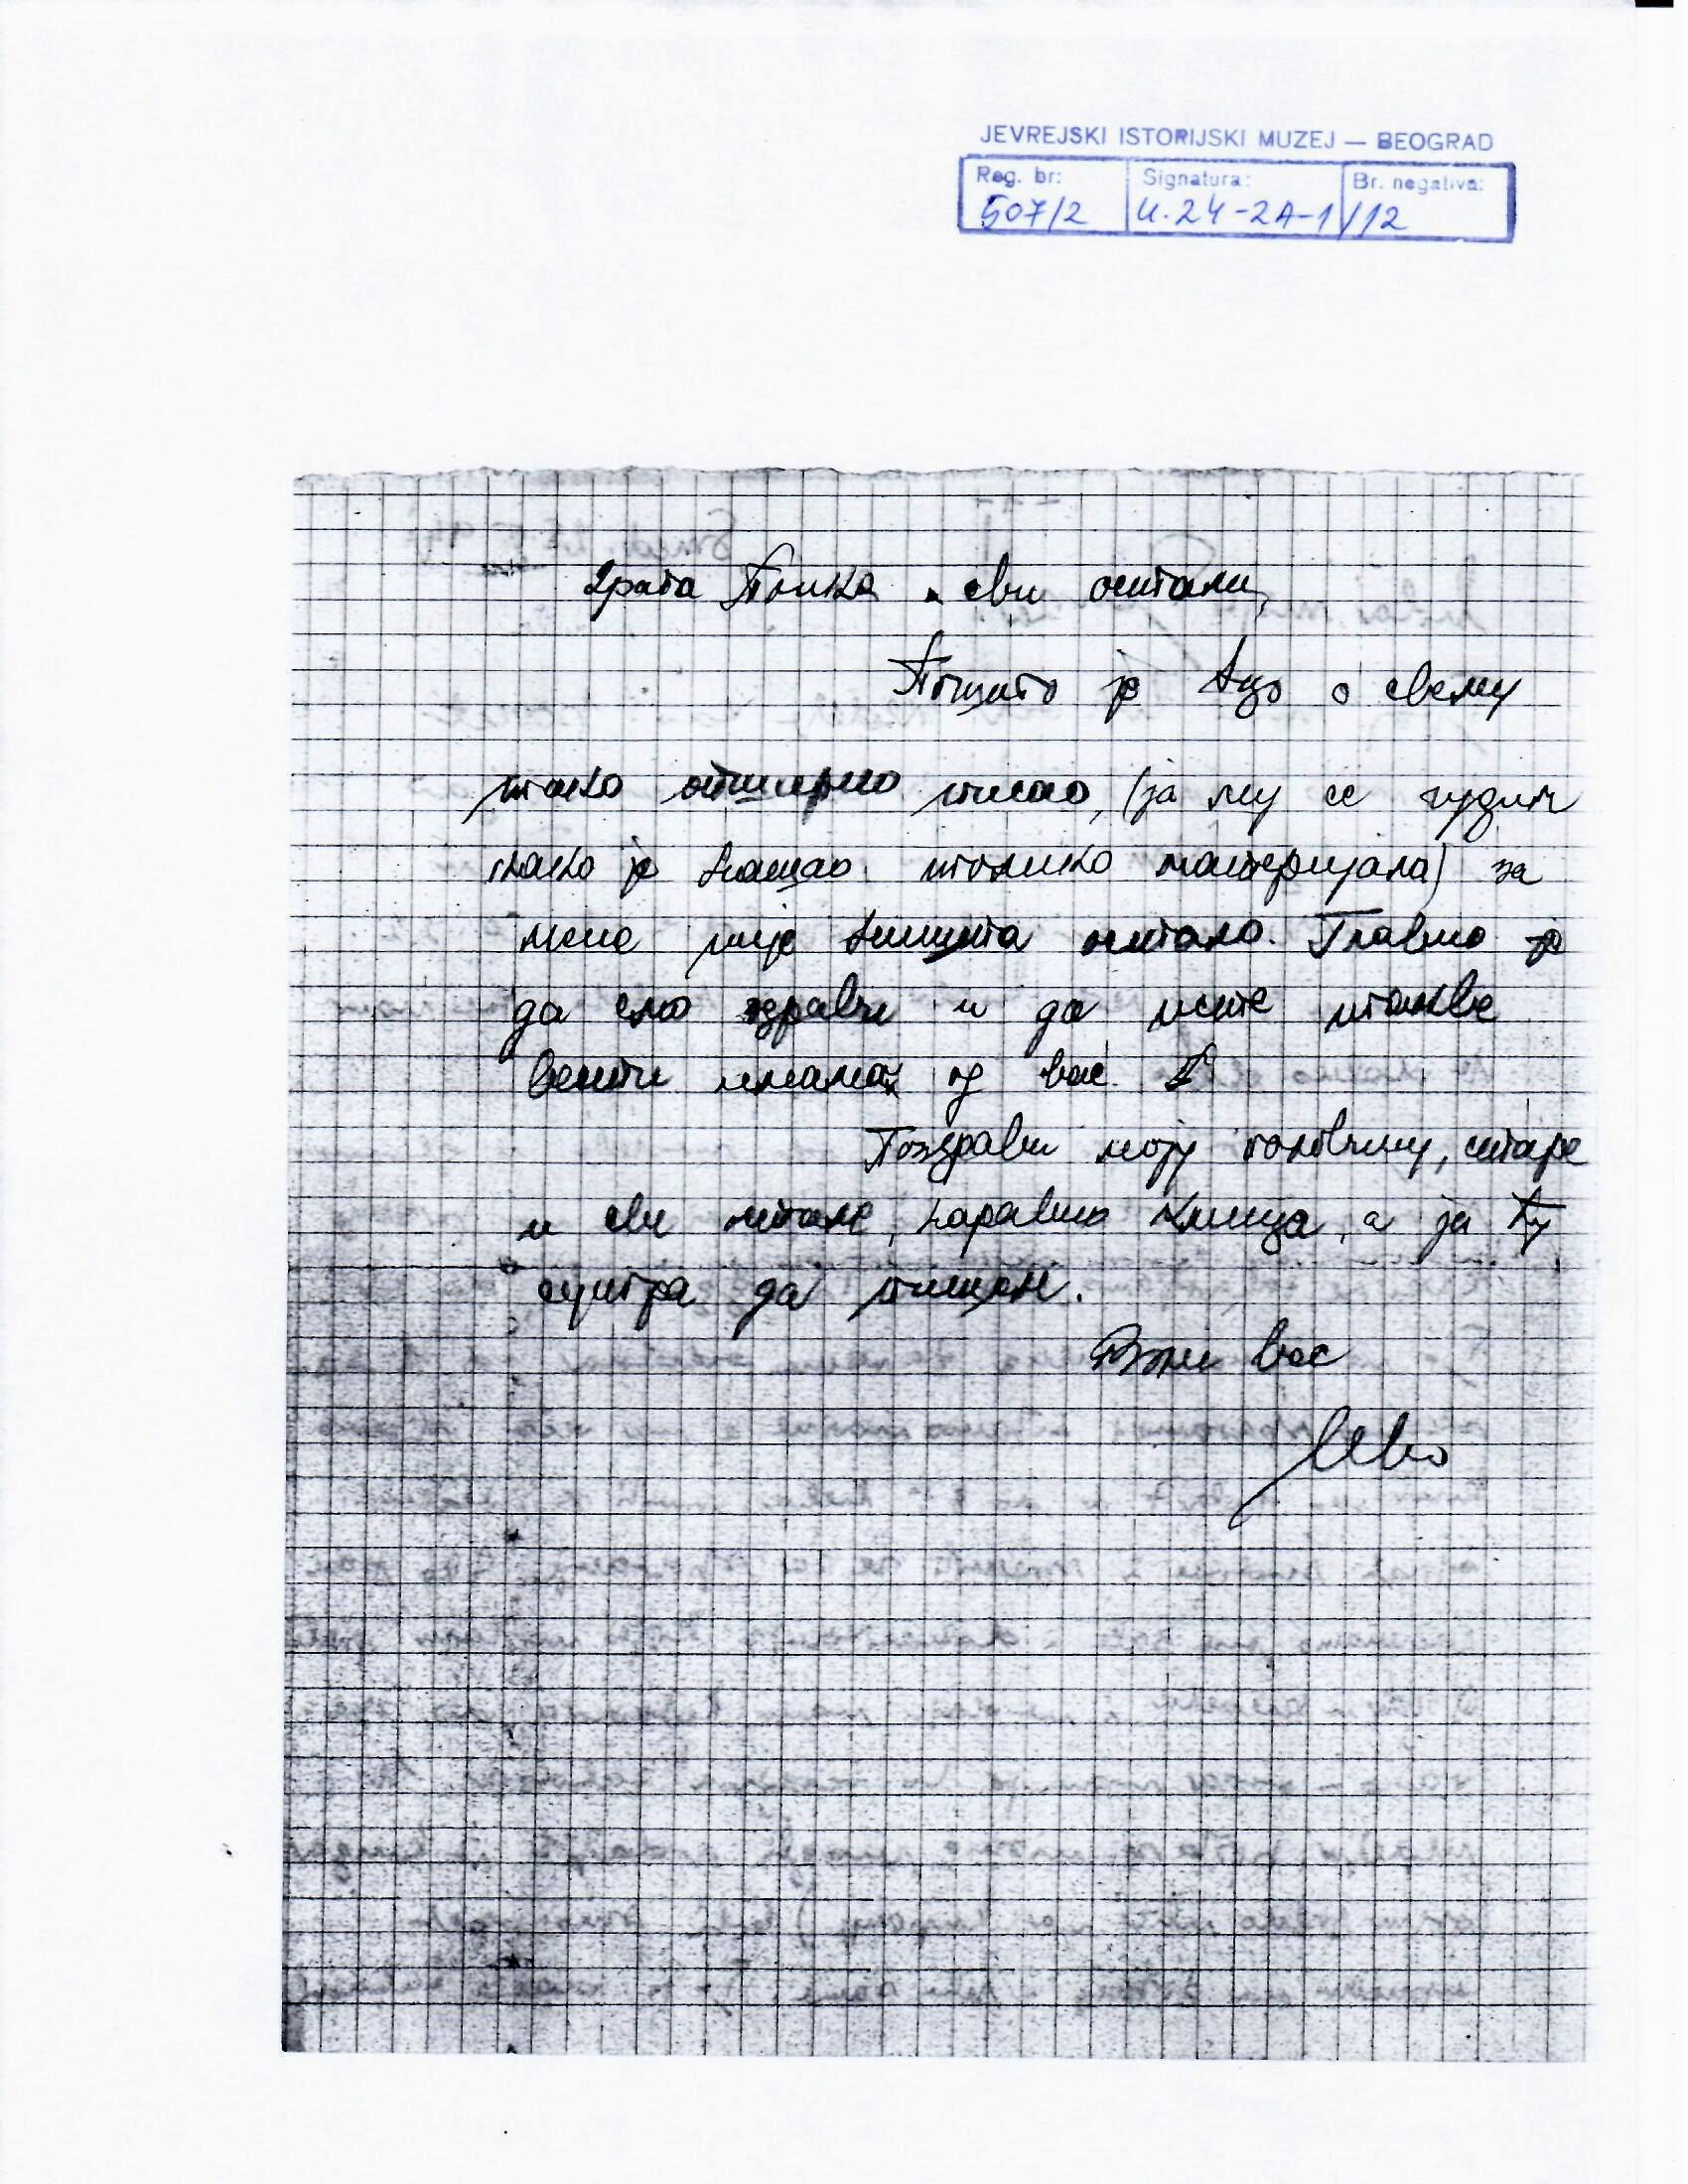 JEVREJSKI ISTORIJSKI MUZEJ — BEOGRAD
Reg. br: Signatura: Br. negativa:
507/2 И.24-2А-1/12
Драга и сви остали,
Пошто је о свему
тако опширно писао, (ја му се чудим
како је нашао толико материјала) за
мене није ништа остало. Главно је
да смо здрави и да исте такве
вести имамо од вас.
Поздрави моју половину, старе
и све остале, наравно а ја ћу
сутра да пишем.
Воли вас